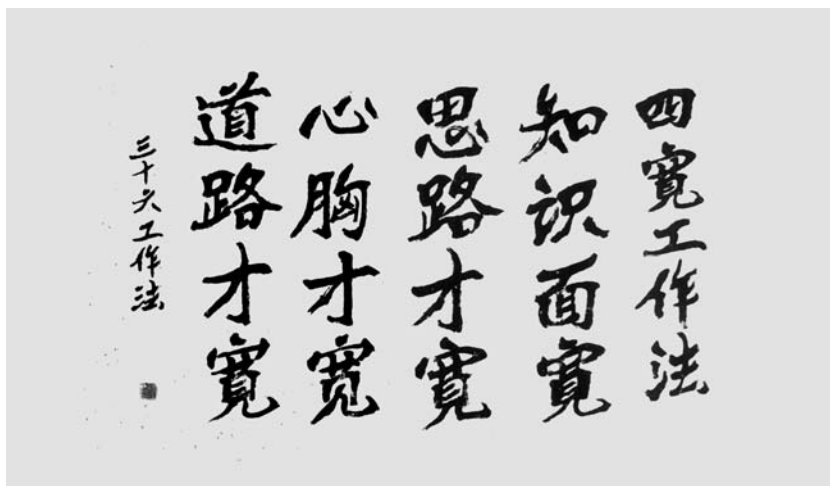 四寬工作法
知识面寬
思路才寬
心胸才宽
道路才寬
三十六工作法